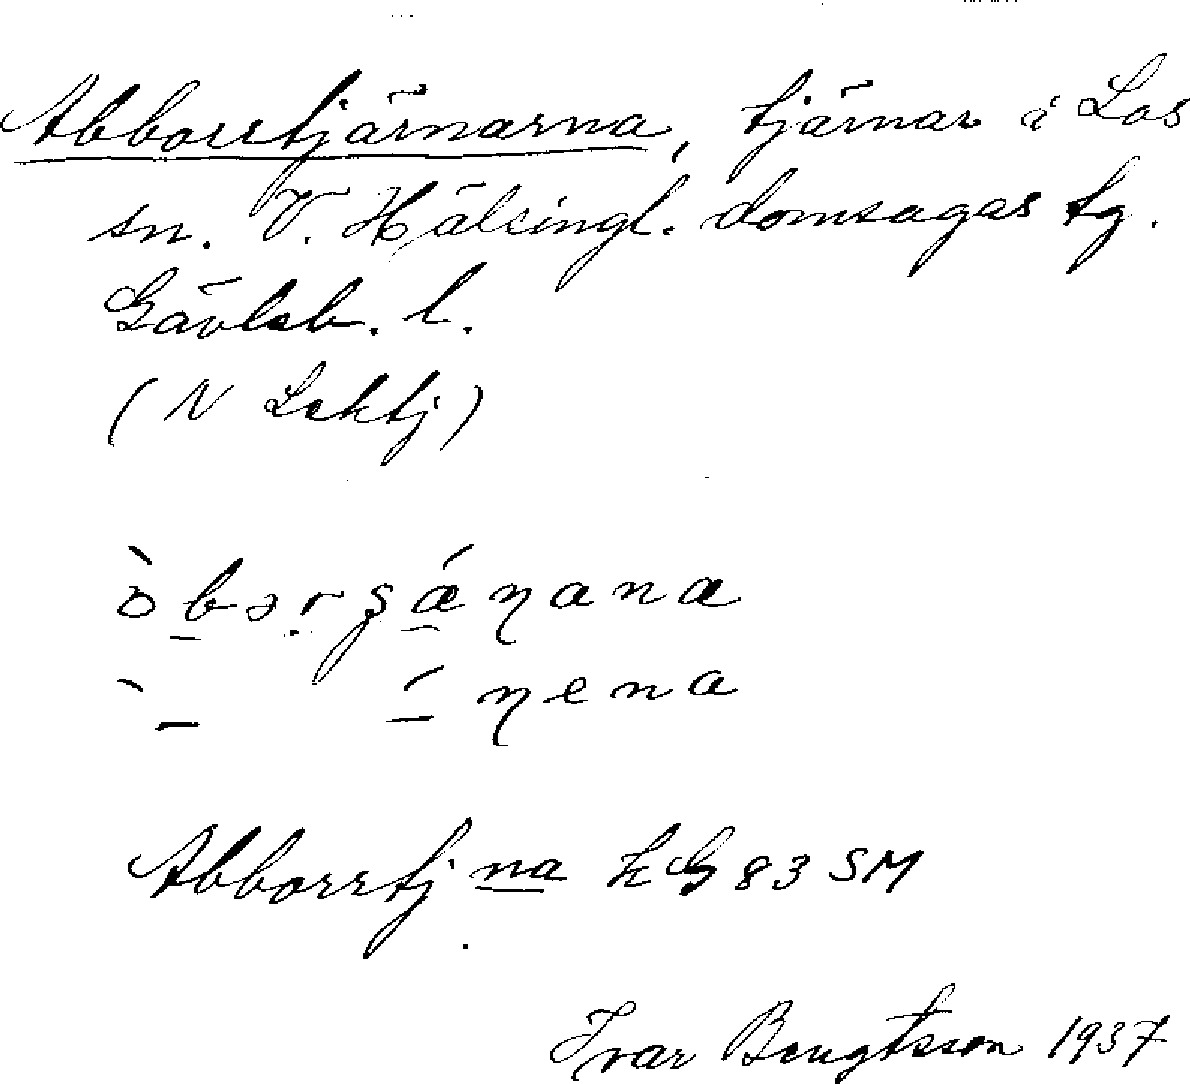 Abborrtjärnarna, tjärnar i Los
sn. V. Hälsingl. domsagas tg.
Gävleb. l.
(N Lektj)
Abborrtj na kG 83 SM
Ivar Bengtsson 1937